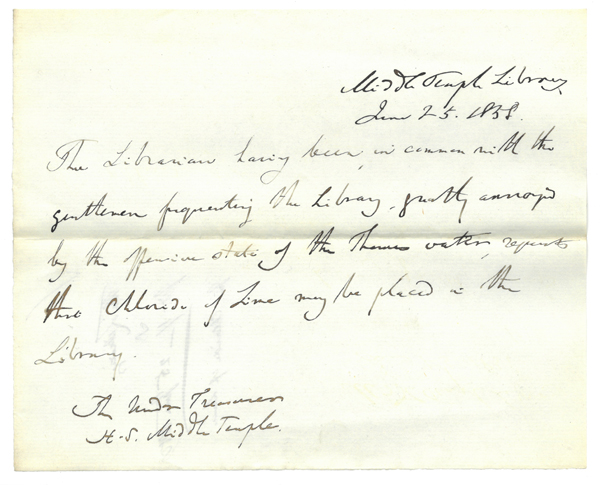 Middle Temple Library,
June 25. 1858.
The Librarian having been, in common with the
gentlemen frequenting the Library, greatly annoyed
by the offensive state of the Thames water, requests
that Chloride of Lime may be placed in the
Library.
The Under Treasurer
H. S. Middle Temple.